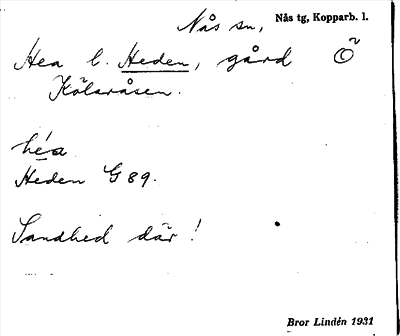 Nås sn, Nås tg, Kopparb. l.
Hea l. Heden, gård Ö
Kölaråsen.
héa
Heden G 89.
Sandhed där!
Bror Lindén 1931